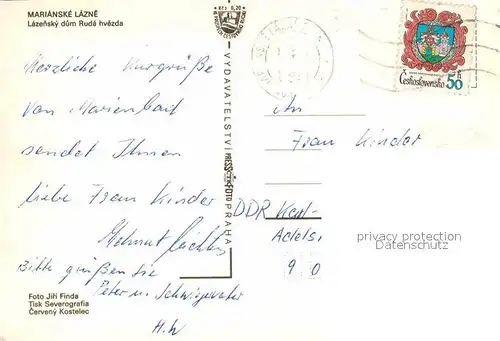 MARIÁNSKÉ LÁZNĚ
Lázeňský dům Rudá hvězda
Herzliche Kurgrüße
von Marienbad
sendet Ihnen
liebe Frau Kinder
Helmut
Bitte grüßen Sie
Peter u. Schwiegervater
H. W
Foto Jiří Finda
Tisk Severografia
Červený Kostelec
Kčs 0,20
VYDAVATELSTVÍ PRESSFOTO PRAHA
Československo 50 h
An
Frau Kinder
DDR
9 0
privacy protection
Datenschutz